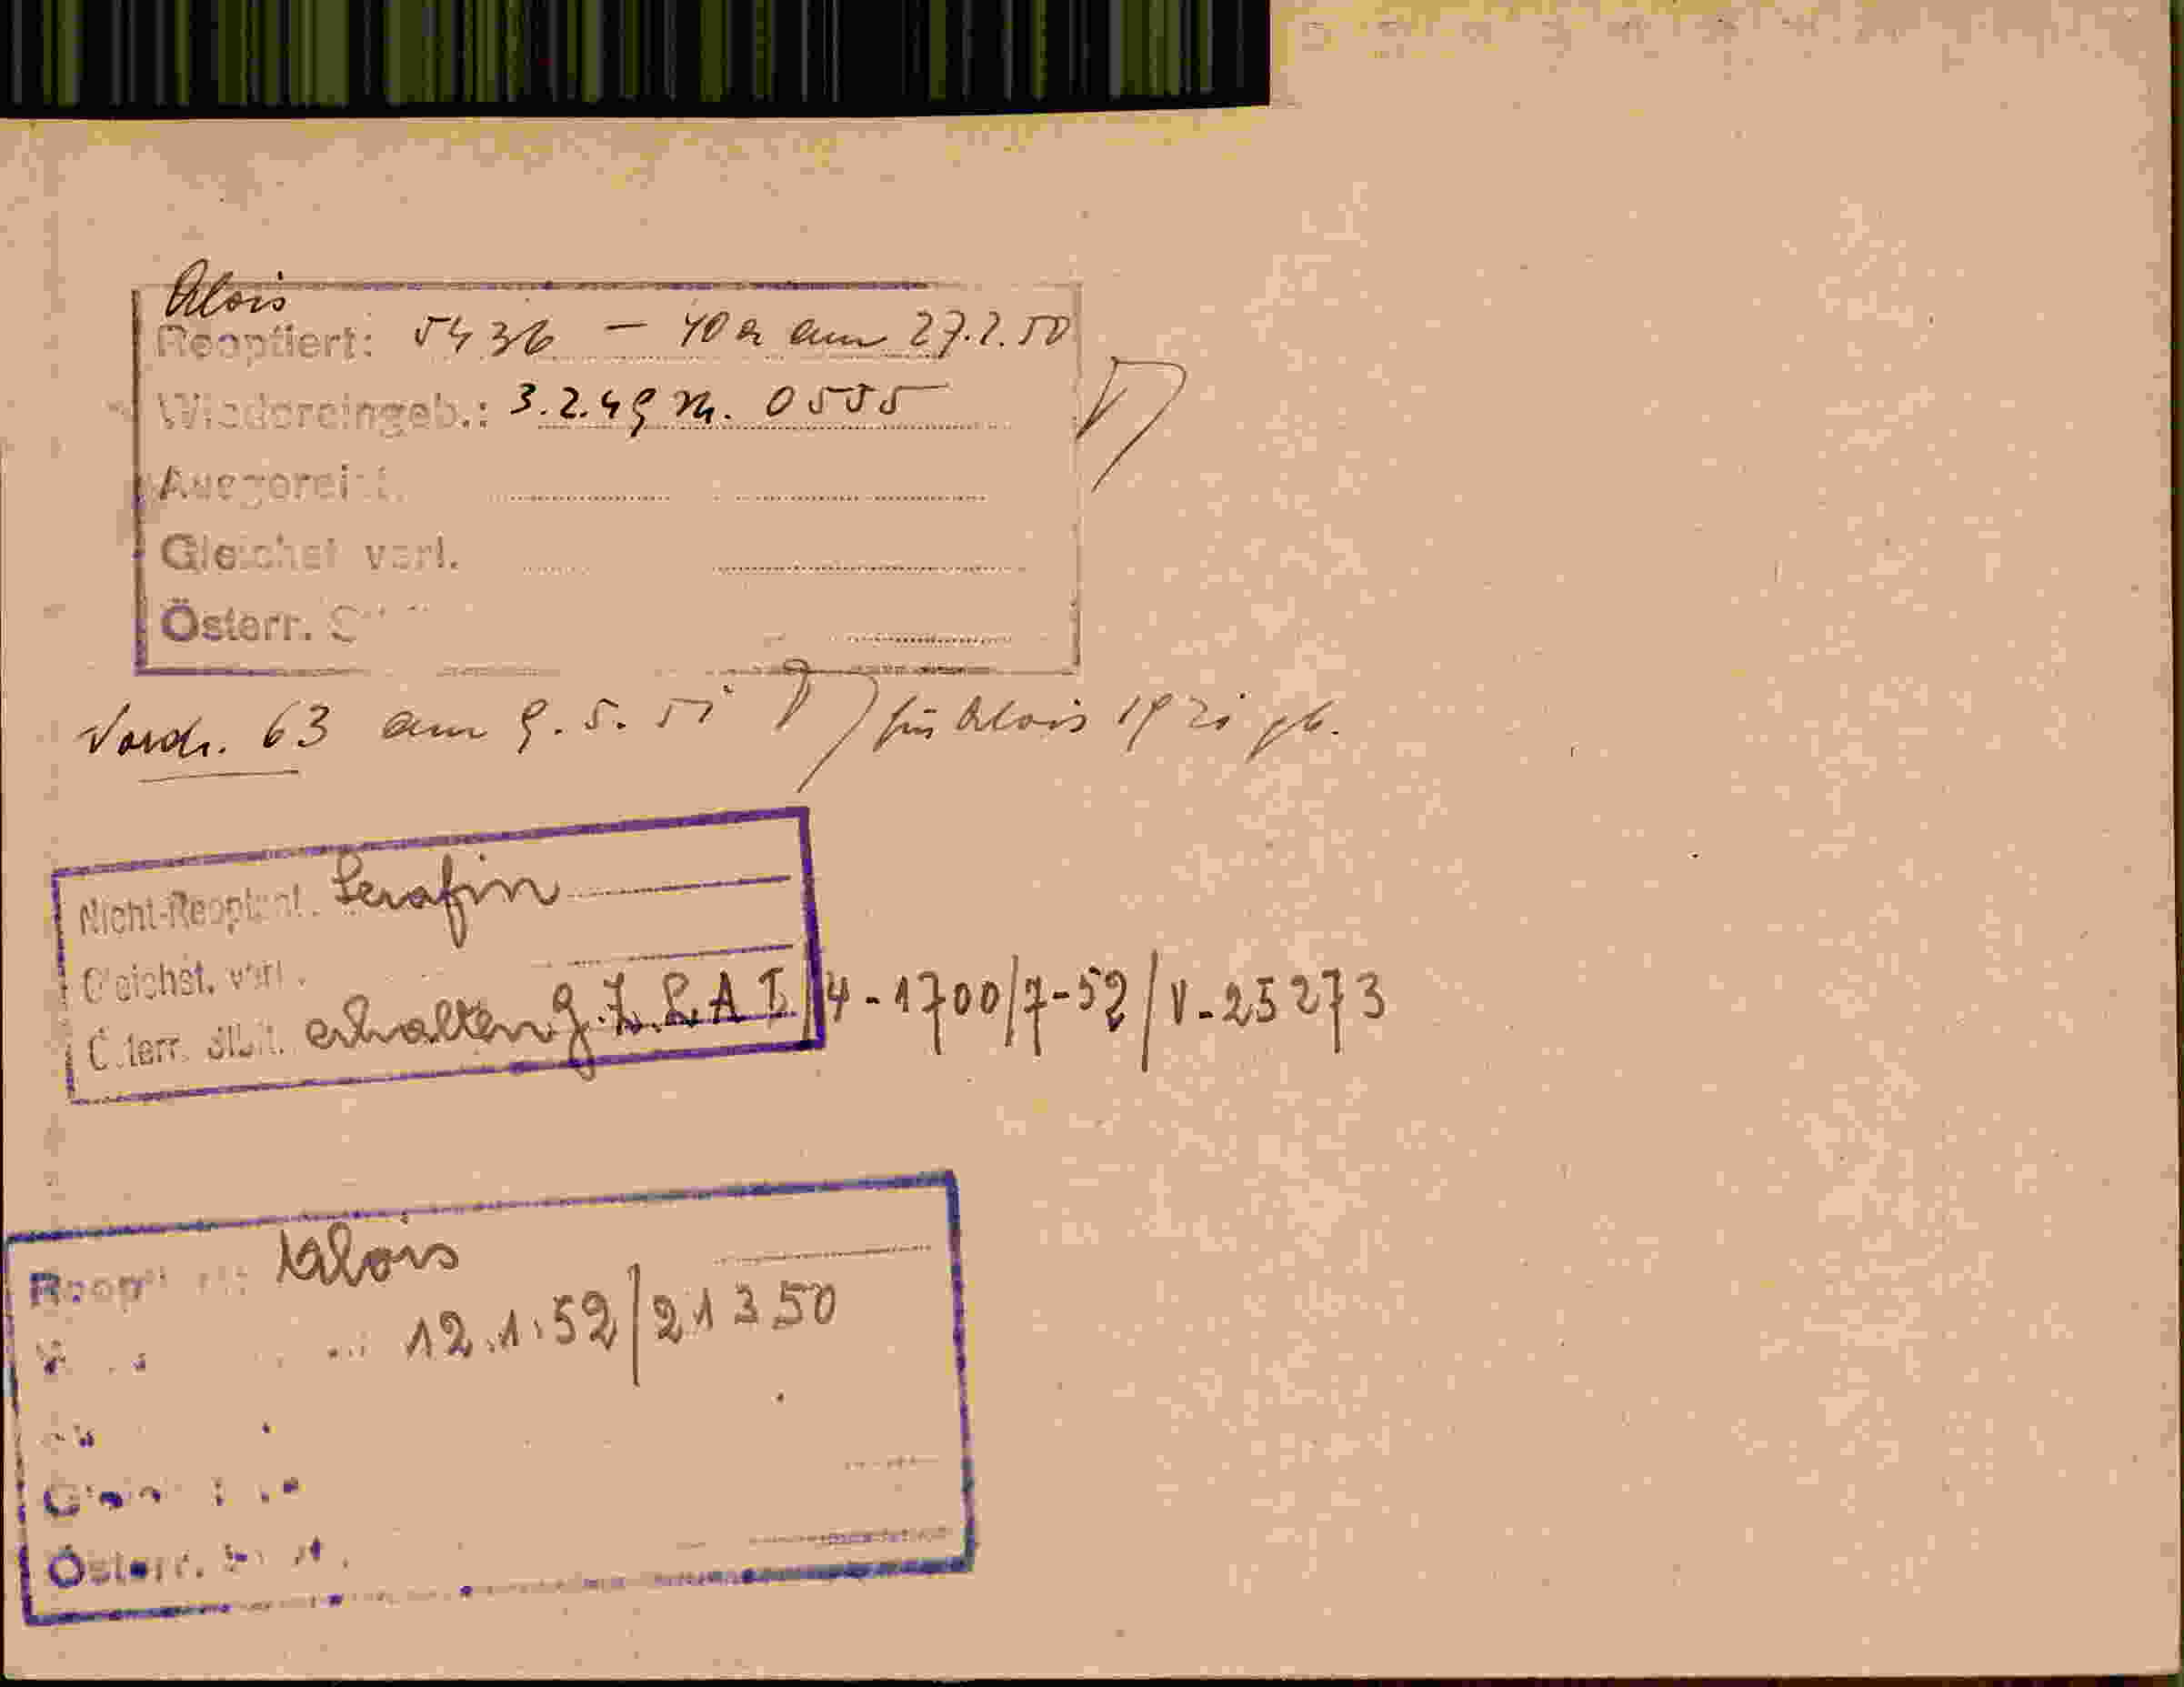 Alois
Reoptiert: 5436 — 40a am 27.2.50
Wiedereingeb.: 3.2.49 Nr. 0555
Ausgereist.
Gleichst verl.
Österr.
Vordr. 63 am 9.5.51 für Alois 1920 gb.
Nicht-Reoptant. Serafin
Gleichst. verl.
Österr. Stbt. erhalten g. Z. L A I/4-1700/7-52/V-25273
Reoptiert: Alois
12.1.52/21350
Österr.